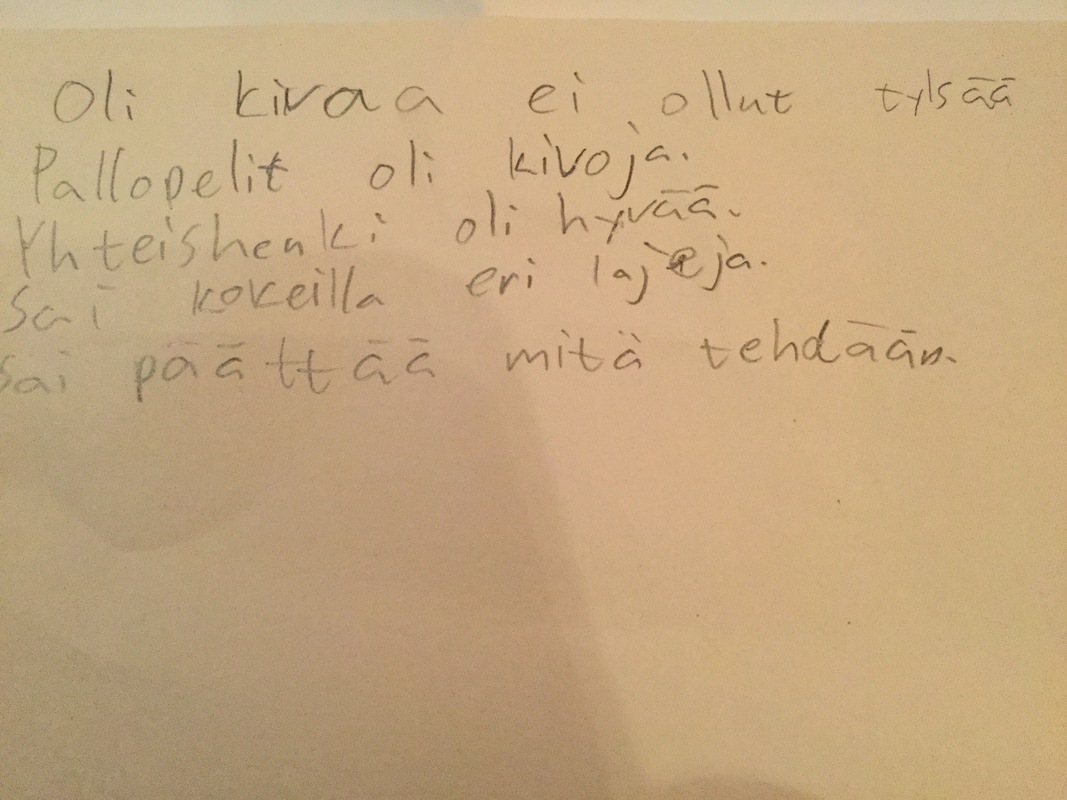 Oli kivaa ei ollut tylsää
Pallopelit oli kivoja.
Yhteishenki oli hyvää.
Sai kokeilla eri lajeja.
Sai päättää mitä tehdään.